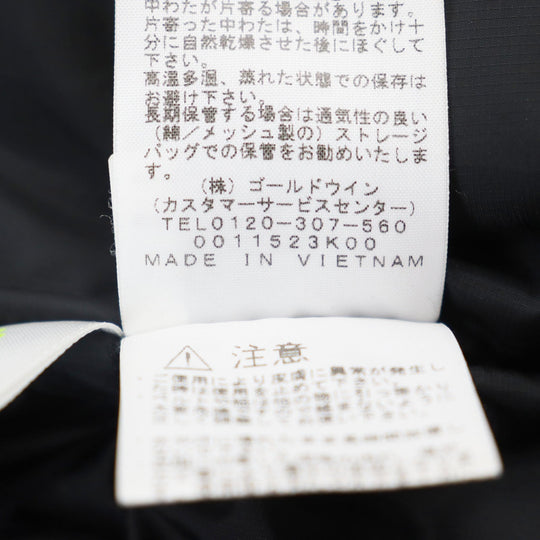 中わたが片寄る場合があります。
片寄った中わたは、時間をかけ十
分に自然乾燥させた後にほぐして
下さい。
高温多湿、蒸れた状態での保存は
お避け下さい。
長期保管する場合は通気性の良い
(綿/メッシュ製の)ストレージ
バッグでの保管をお勧めいたしま
す。
(株)ゴールドウイン
(カスタマーサービスセンター)
TEL0120-307-560
0011523K00
MADE IN VIETNAM
注意
使用により皮膚に異常が発生し